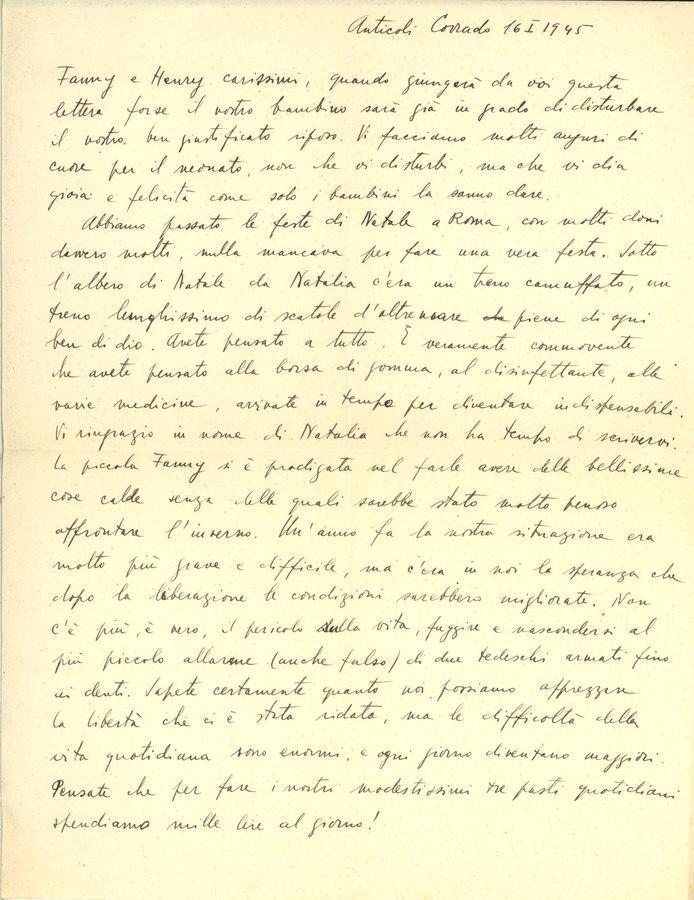 Anticoli Corrado 16 I 1945
Fanny e Henry carissimi, quando giungerà da voi questa
lettera forse il vostro bambino sarà già in grado di disturbare
il vostro ben giustificato riposo. Vi facciamo molti auguri di
cuore per il neonato, non che vi disturbi, ma che vi dia
gioia e felicità come solo i bambini la sanno dare.
Abbiamo passato le feste di Natale a Roma, con molti doni
davvero molti, nulla mancava per fare una vera festa. Sotto
l'albero di Natale da Natalia c'era un treno camuffato, un
treno lunghissimo di scatole d'oltremare piene di ogni
ben di dio. Avete pensato a tutto. È veramente commovente
che avete pensato alla borsa di gomma, al disinfettante, alle
varie medicine, arrivate in tempo per diventare indispensabili.
Vi ringrazio in nome di Natalia che non ha tempo di scrivervi.
La piccola Fanny si è prodigata nel farle avere delle bellissime
cose calde senza delle quali sarebbe stato molto penoso
affrontare l'inverno. Un'anno fa la nostra situazione era
molto più grave e difficile, ma c'era in noi la speranza che
dopo la liberazione le condizioni sarebbero migliorate. Non
c'è più, è vero, il pericolo sulla vita, fuggire e nascondersi al
più piccolo allarme (anche falso) di due tedeschi armati fino
ai denti. Sapete certamente quanto noi possiamo apprezzare
la libertà che ci è stata ridata, ma le difficoltà della
vita quotidiana sono enormi, e ogni giorno diventano maggiori.
Pensate che per fare i nostri modestissimi tre pasti quotidiani
spendiamo mille lire al giorno!